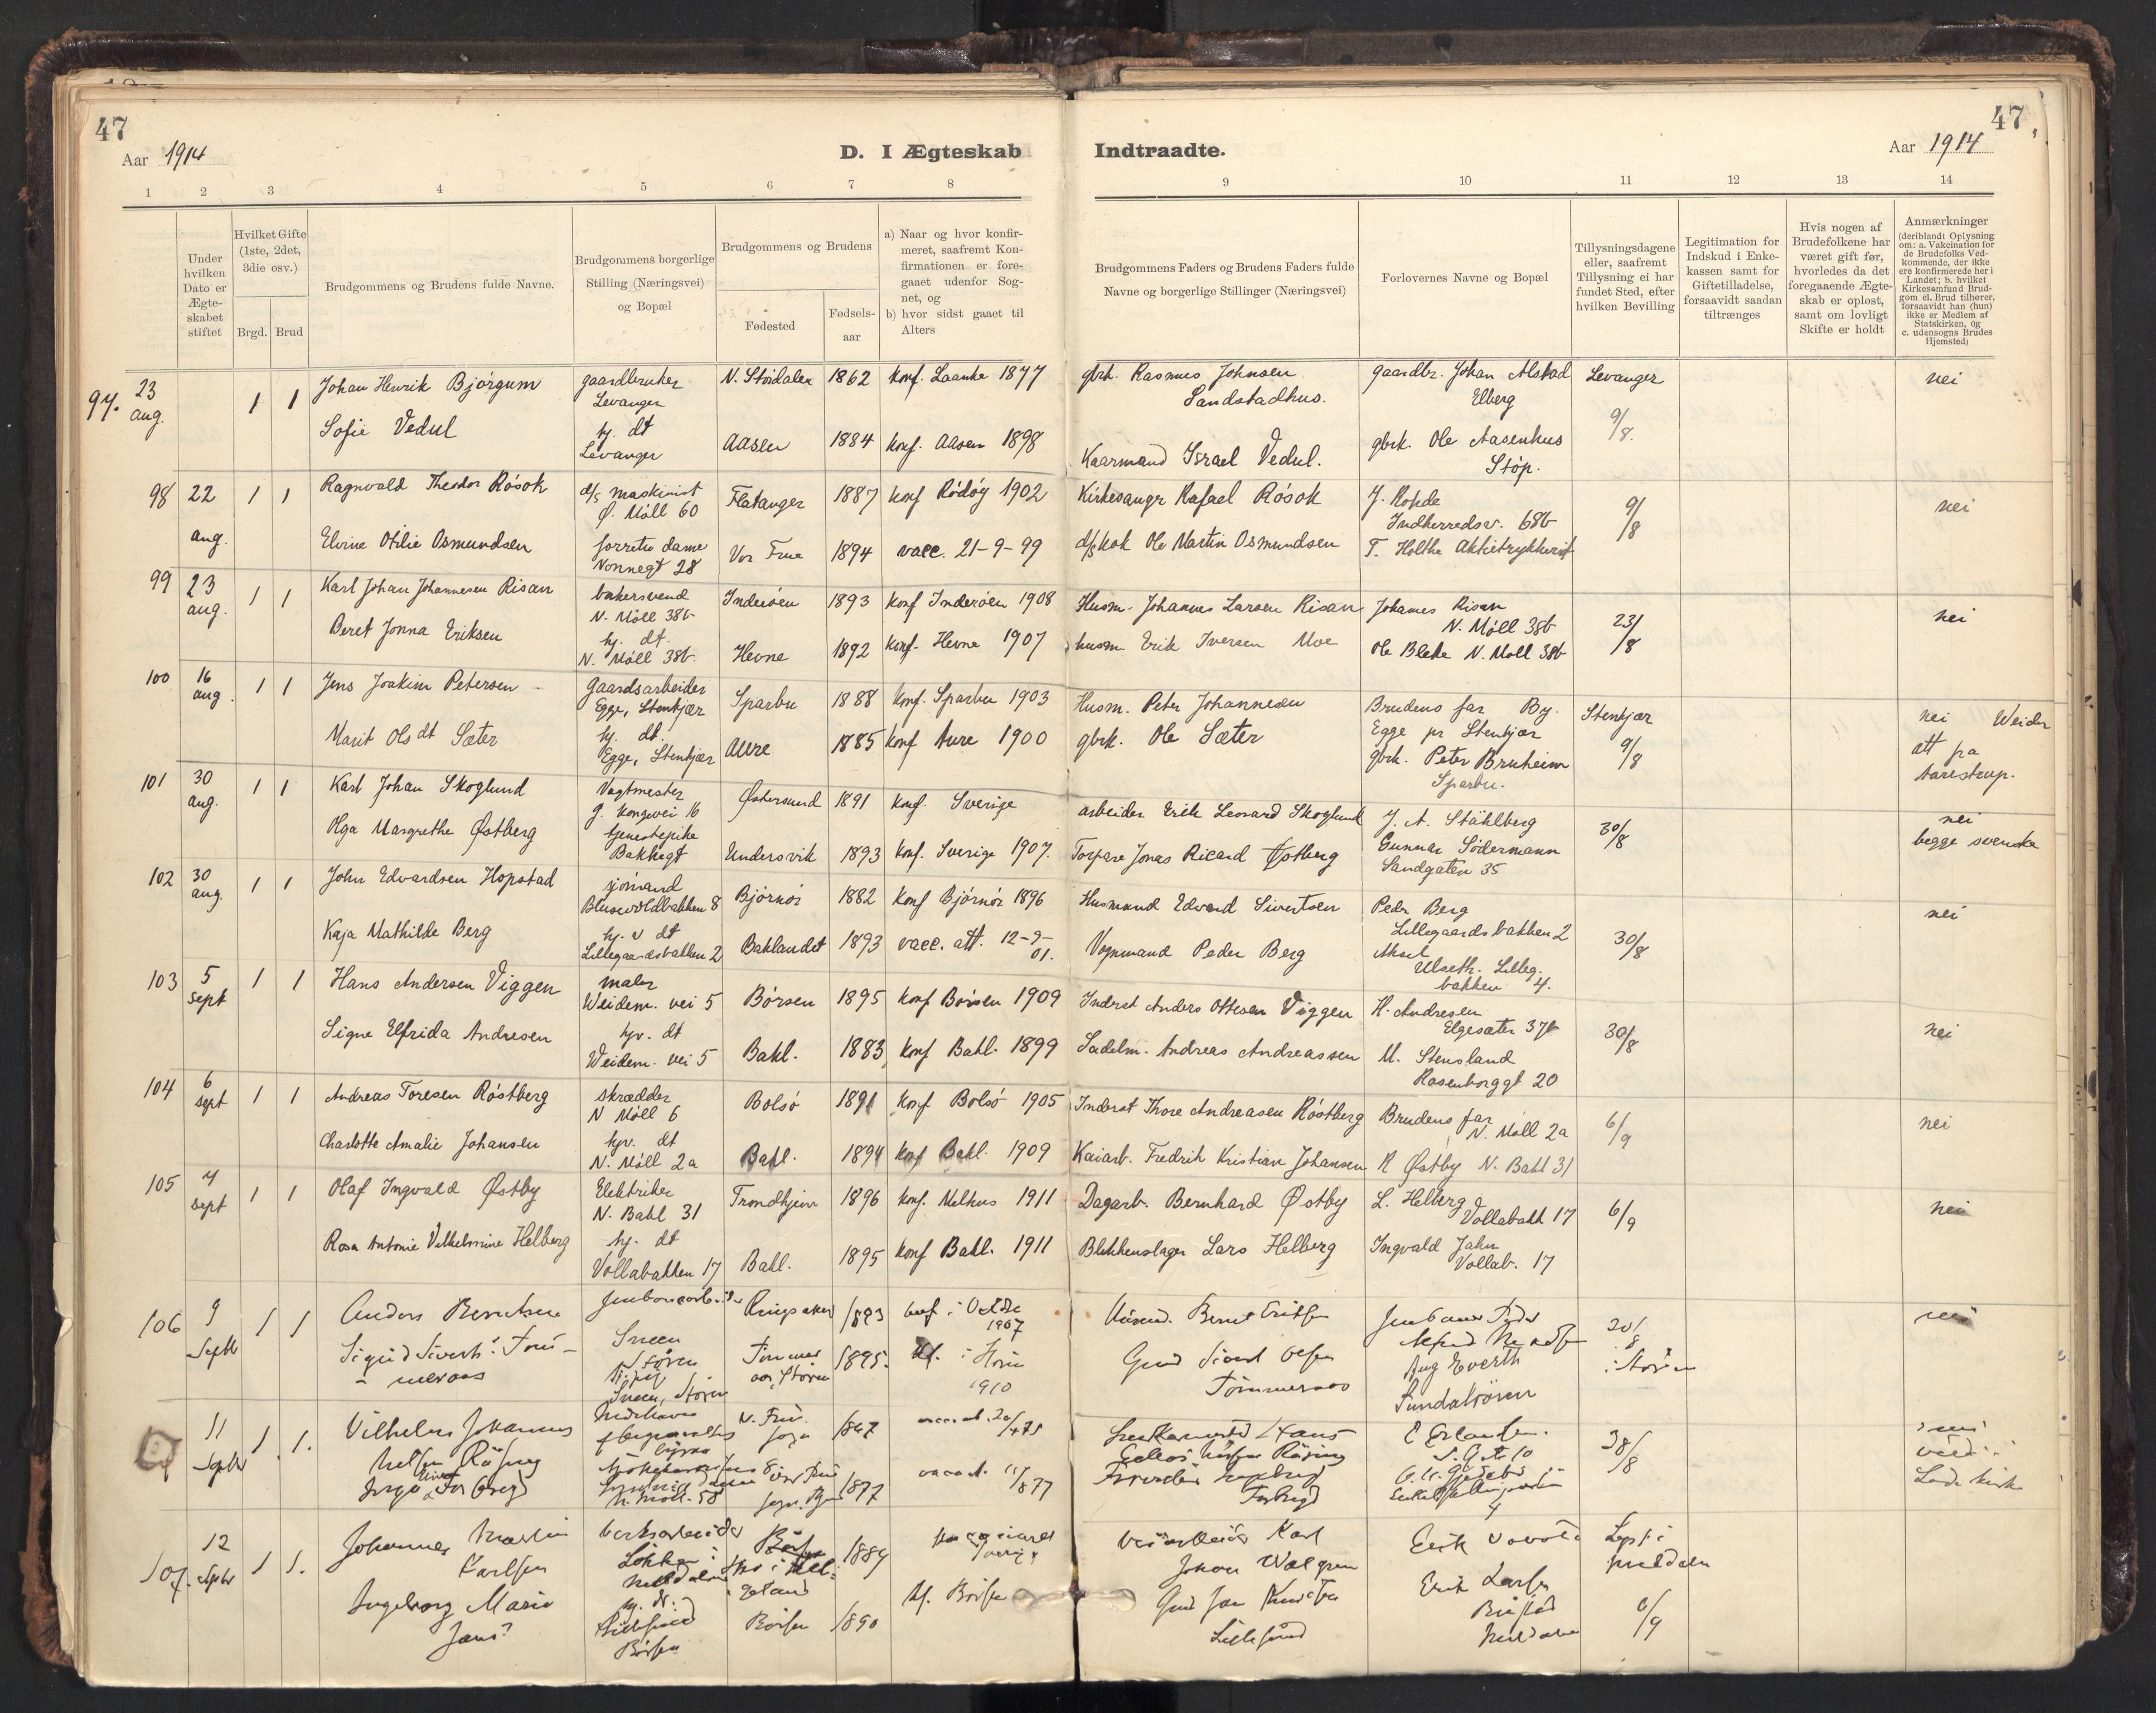 47
47
Aar 1914
D. I Ægteskab Indtraadte.
Aar 1914
1 2 3 4 5 6 7 8 9 10 11 12 13 14
Under hvilken Dato er Ægte-skabet stiftet
Hvilket Gifte (1ste, 2det, 3die osv.)
Brgd. Brud
Brudgommens og Brudens fulde Navne.
Brudgommens borgerlige Stilling (Næringsvei) og Bopæl
Brudgommens og Brudens
Fødested
Fødsels-aar
a) Naar og hvor konfir-meret, saafremt Kon-firmationen er fore-gaaet udenfor Sog-net, og
b) hvor sidst gaaet til Alters
Brudgommens Faders og Brudens Faders fulde Navne og borgerlige Stillinger (Næringsvei)
Forlovernes Navne og Bopæl
Tillysningsdagene eller, saafremt Tillysning ei har fundet Sted, efter hvilken Bevilling
Legitimation for Indskud i Enke-kassen samt for Giftetilladelse, forsaavidt saadan tiltrænges
Hvis nogen af Brudefolkene har været gift før, hvorledes da det foregaaende Ægte-skab er opløst, samt om lovligt Skifte er holdt
Anmærkninger (deriblandt Oplysning om: a. Vakcination for de Brudefolks Ved-kommende, der ikke ere konfirmerede her i Landet; b. hvilket Kirkesamfund Brud-gom el. Brud tilhører, forsaavidt han (hun) ikke er Medlem af Statskirken, og c. udensogns Brudes Hjemsted)
97. 23 aug. 1 1 Johan Henrik Bjørgum gaardbruker Levanger N. Stjørdalen 1862 Konf. Laanke 1877 gbrk. Rasmus Johnsen Sandstadhus. gaardbr. Johan Alstad Elberg Levanger 9/8. nei
Sofie Vedul hj. dt Levanger Aasen 1884 konf. Aasen 1898 Kaarmand Israel Vedul. gbrk. Ole Aasenhus Støp.
98 22 aug. 1 1 Ragnvald Theodor Røsok d/s maskinist Ø. Møll 60 Flatanger 1887 konf Rødøy 1902 Kirkesanger Rafael Røsok J. Rohde Indherredsv. 68b 9/8 nei
Elvine Otilie Osmundsen forretn dame Nonnegt 28 Vor Frue 1894 vacc. 21-9-99 d/s kok Ole Martin Osmundsen T. Holthe Aktietrykkeriet
99 23 aug. 1 1 Karl Johan Johannesen Risan bakersvend N. Møll 38b Inderøen 1893 Konf Inderøen 1908 Husm. Johannes Larsen Risan Johannes Risan N. Møll 38b 23/8 nei
Beret Jonna Eriksen hj. dt. N. Møll 38b. Hevne 1892 Konf. Hevne 1907 husm Erik Iversen Moe Ole Bleke N. Moll 38b
100 16 aug. 1 1 Jens Joakim Petersen gaardsarbeider Egge, Stenkjær Sparbu 1888 konf. Sparbu 1903 Husm. Peter Johannesen Brudens far By. Egge pr Stenkjær Stenkjær 9/8 nei Weider att fra Aarestrup.
Marit Olsdt Sæter hj. dt. Egge, Stenkjær Aure 1885 konf Aure 1900 gbrk. Ole Sæter gbrk. Peter Bruheim Sparbu.
101 30 aug. 1 1 Karl Johan Skoglund Vagtmester g. Kongevei 16 Østersund 1891 konf. Sverige arbeider Erik Leonard Skoglund J. A. Ståhlberg 30/8 nei begge svenske
Olga Margrethe Østberg tjenestepike Bakkegt Undersvik 1893 Konf. Sverige 1907. Torpare Jonas Ricard Østberg Gunnar Södermann Sandgaten 35
102 30 aug. 1 1 John Edvardsen Hopstad sjømand Blusuvoldbakken 8 Bjørnør 1882 Konf Bjørnør 1896 Husmand Edvard Sivertsen Peder Berg Lillegaardsbakken 2 30/8 nei
Kaja Mathilde Berg hj. v dt Lillegaardsbakken 2 Baklandet 1893 vacc. att. 12-9-01. Vognmand Peder Berg Aksel Ulseth. Lilleg. bakken 4.
103 5 sept 1 1 Hans Andersen Viggen maler Weidem. vei 5 Børsen 1895 konf Børsen 1909 Inderst Anders Ottesen Viggen H. Andresen Elgesæter 37b 30/8 nei
Signe Elfrida Andresen hjv. dt Weidem. vei 5 Bakl. 1883 konf Bakl. 1899 Sadelm. Andreas Andreassen M. Stensland Rosenborggt 20
104 6 sept 1 1 Andreas Toresen Røstberg skrædder N Møll 6 Bolsø 1891 konf Bolsø 1905 Inderst Thore Andreasen Røstberg Brudens far N. Møll 2a 6/9 nei
Charlotte Amalie Johansen hjv. dt N. Møll 2a Bakl. 1894 konf Bakl. 1909 Kaiarb. Fredrik Kristian Johansen R Østby N. Bakl 31
105 4 sept 1 1 Olaf Ingvald Østby Elektriker N. Bakl 31 Trondhjem 1896 konf. Melhus 1911 Dagarb. Bernhard Østby L. Helberg Vollabakk 17 6/9 nei
Rosa Antonie Vilhelmine Helberg hj. dt Vollabakken 17 Bakl. 1895 konf Bakl. 1911 Blikkenslager Lars Helberg Ingvald Jahn Vollab. 17
106 9 Septb 1 1 Anders Berntsen Sneen Støren Ringsaker 1893 1907 Bernt 20/8 i Støren nei
Sigrid Sivertsd. Tømmeraas Sneen, Støren Støren 1895. 1910 Gmd Sivert Olsen Tømmeraas Aug Everth Sundatrøren
11 Septbr 1 1. Vilhelm Johannes Røsing 1867 Hans Røsing 10 28/8 nei
Inga Forbregd N. Møll. 58 1877 Forbregd 4
107. 12 Septbr 1 1. Johannes Martin Karlsen Løkken i Meldalen 1889 Karl Johan Erik Meldalen 6/9
Ingeborg Marie Jans. Børsen Børsen 1890 kf. Børsen Gmd Jan Erik Larsen Meldalen